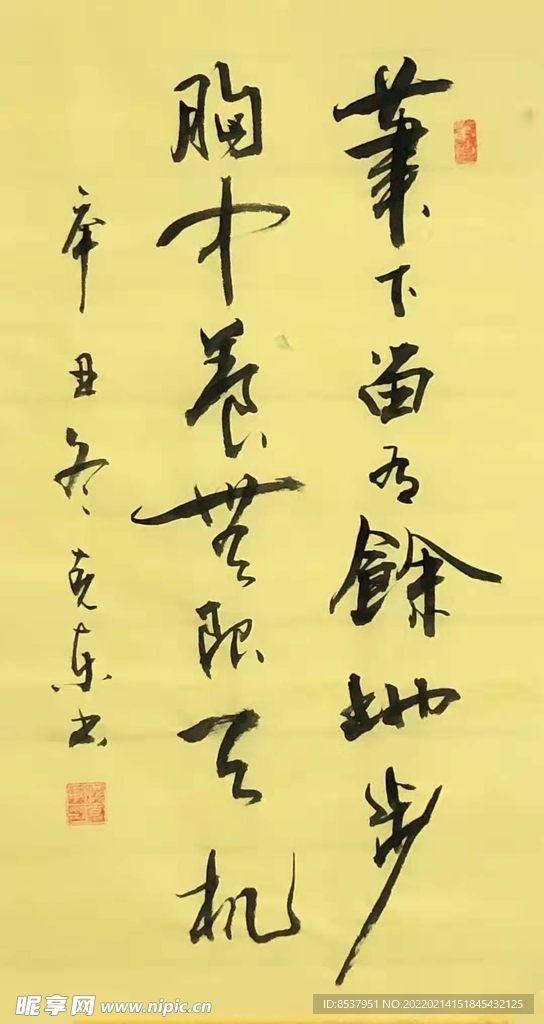 筆下留有餘地步
胸中養無限天机
辛丑冬克东书
昵享网 www.nipic.cn
ID:8537951 NO:20220214151845432125